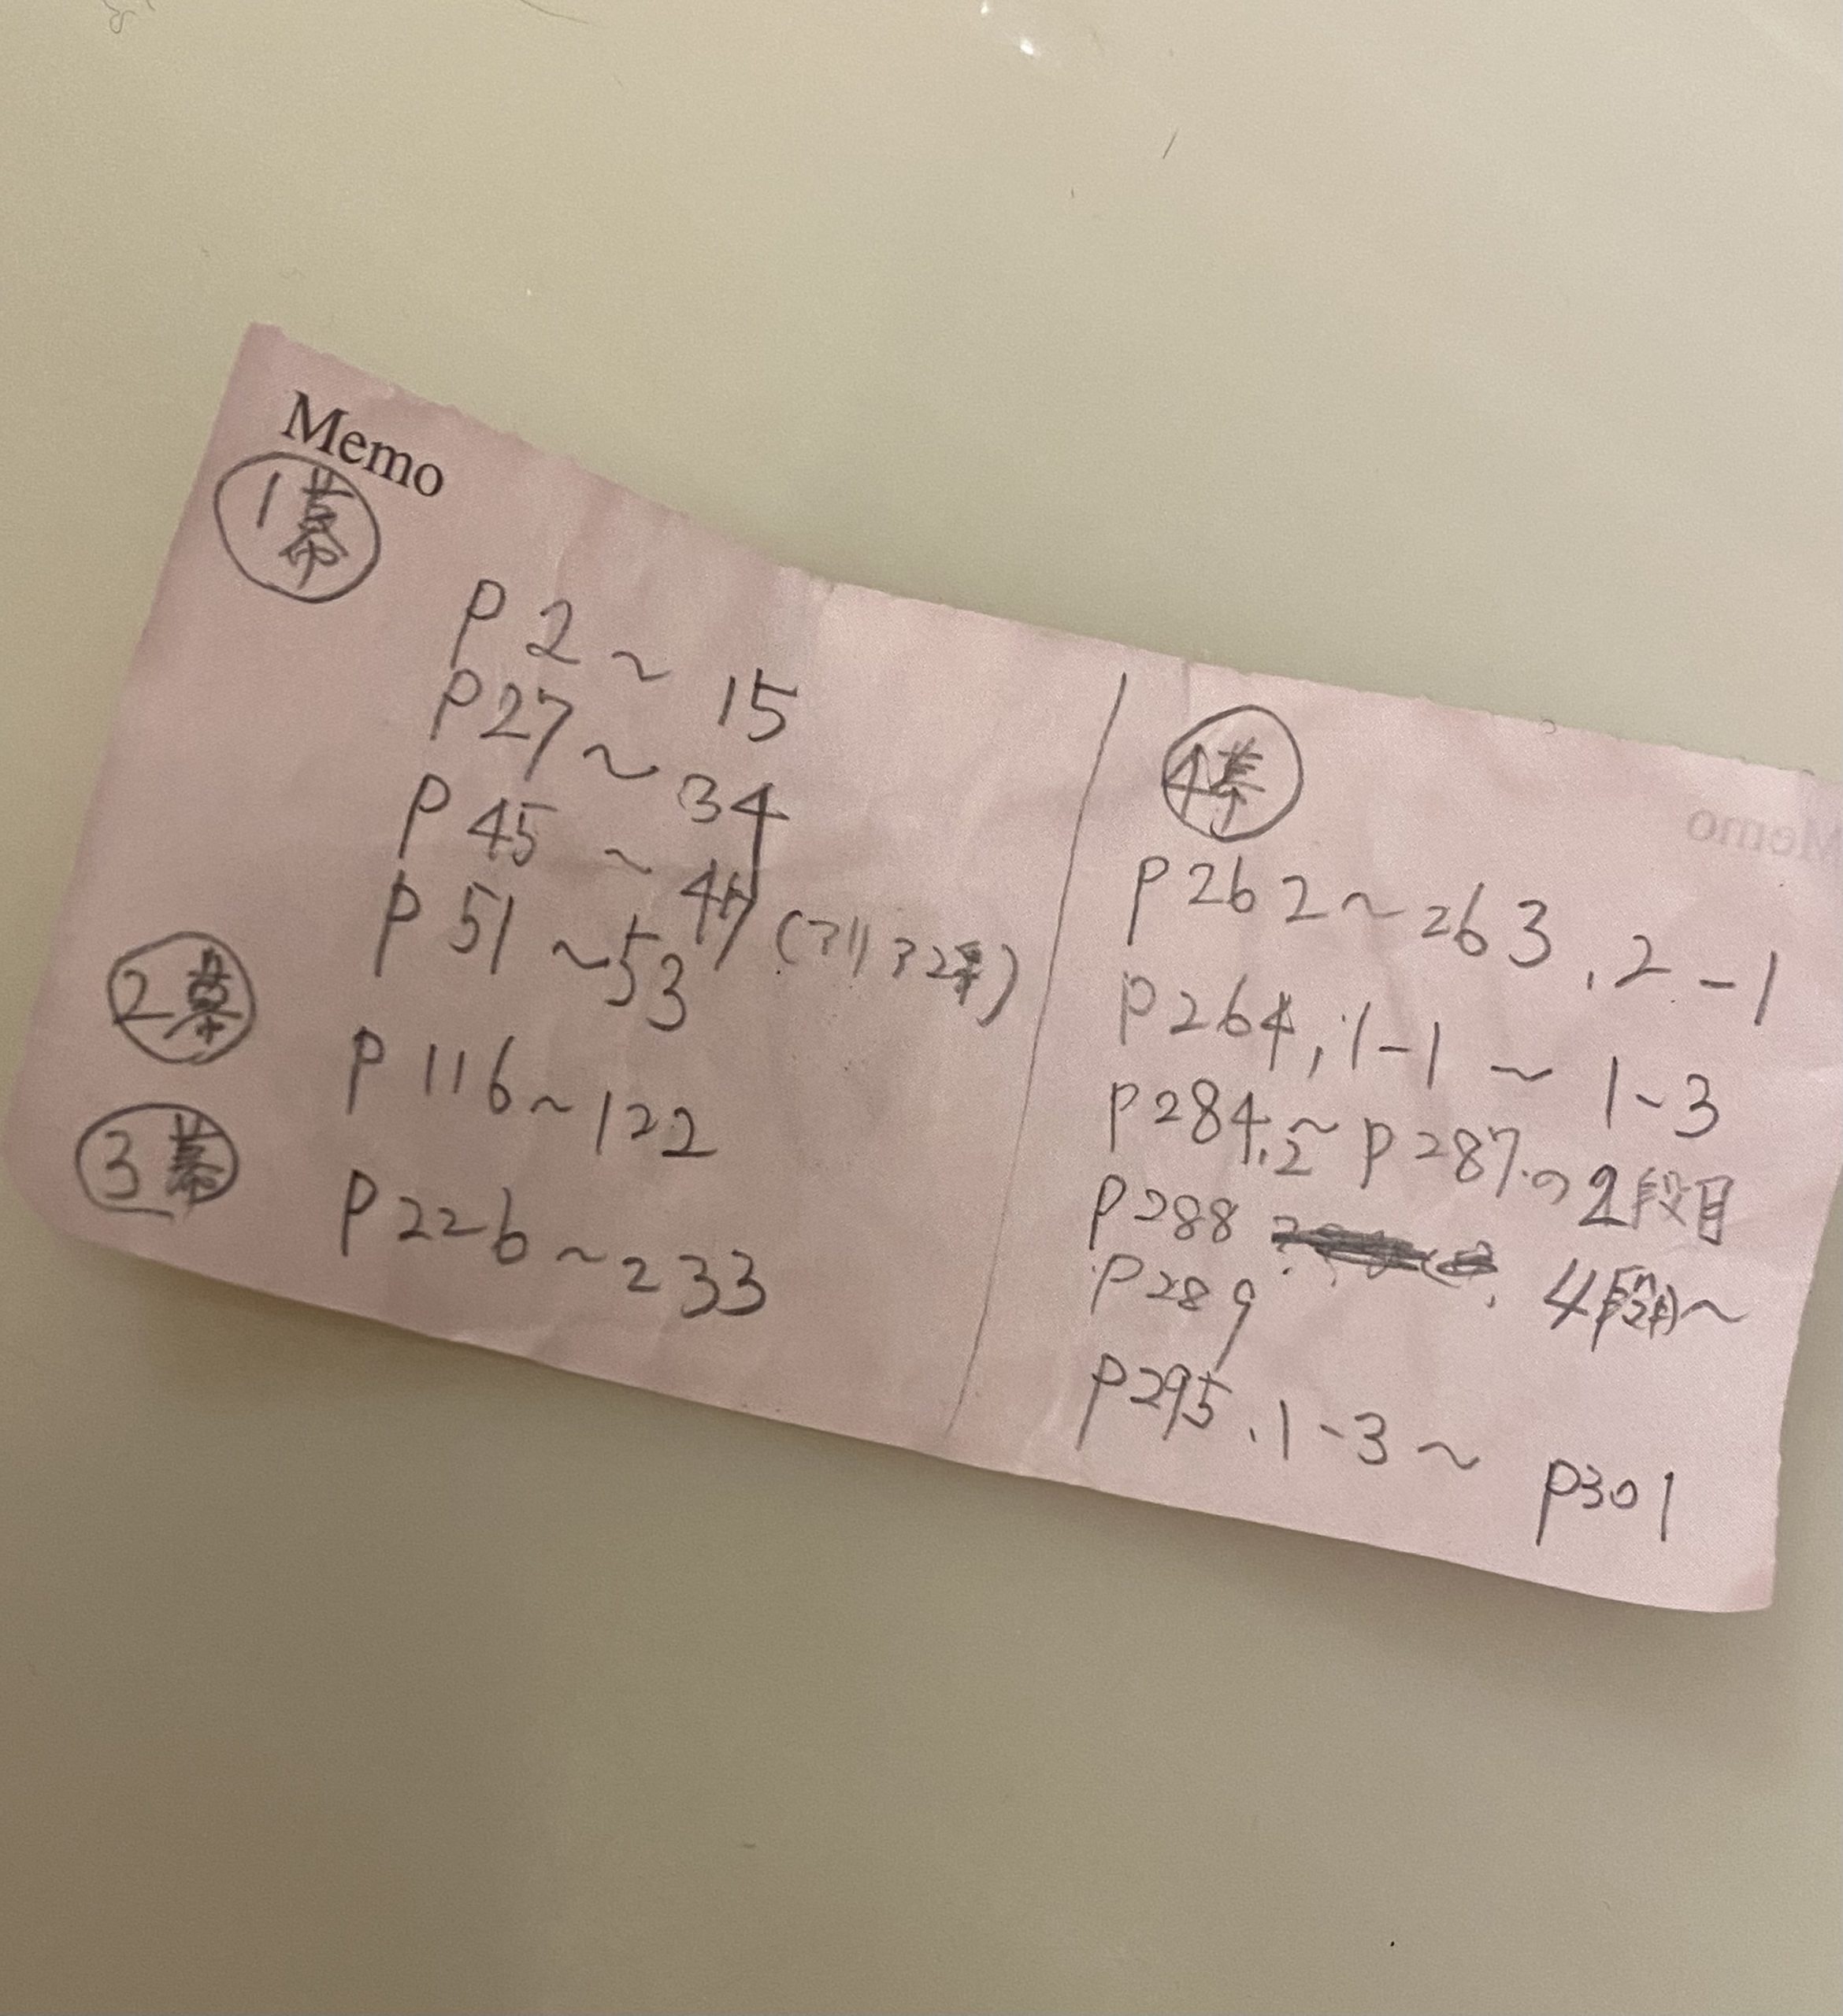 Memo
1幕
P2〜15
P27〜34
P45〜47
P51〜53 (アリア2番)
2幕
P116〜122
3幕
P226〜233
4幕
P262〜263.2-1
P264,1-1〜1-3
P284.2〜P287の2段目
P288 4段目〜
P289
P295.1-3〜P301
Memo